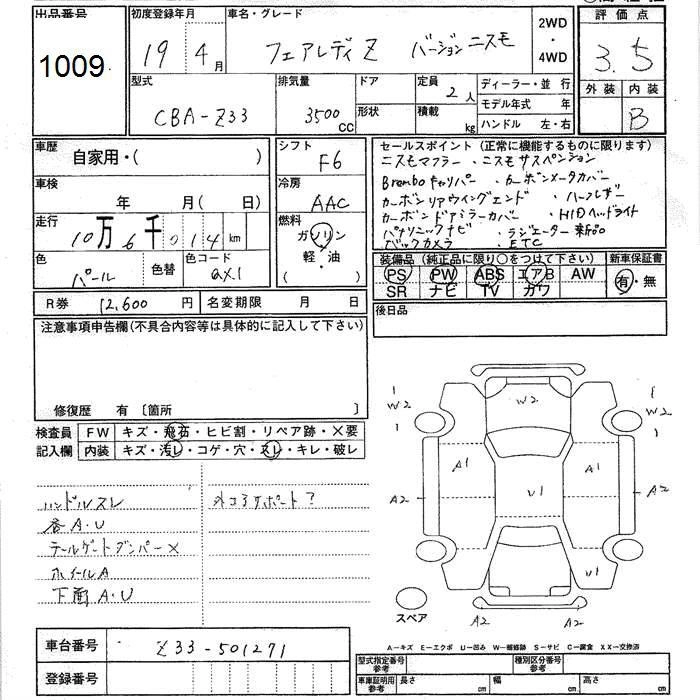 出品番号 初度登録年月 車名・グレード 2WD・4WD 評価点
1009 19年 4月 フェアレディZ バージョンニスモ 3.5
型式 排気量 ドア 定員 ディーラー・並行 外装 内装
CBA-Z33 3500CC 形状 2人 積載 kg モデル年式 年 B
ハンドル 左・右
車歴 自家用・( ) シフト F6
セールスポイント (正常に機能するものに限ります)
ニスモマフラー・ニスモサスペンション
Bremboキャリパー、カーボンメータカバー
カーボンリアウイングエンド、ハーフレザー
カーボンドアミラーカバー、HIDヘッドライト
パナソニックナビ、ラジエーター新品
バックカメラ、ETC
車検 年 月( 日) 冷房 AAC
走行 10万6千014km 燃料 ガソリン・軽・油( )
色 パール 色替 色コード QX1
装備品 (純正品に限り○をつけて下さい) 新車保証書
PS PW ABS エアB AW 有・無
SR ナビ TV カワ
R券 12,600円 名変期限 月 日
後日品
注意事項申告欄(不具合内容等は具体的に記入して下さい)
修復歴 有 〔箇所 〕
検査員記入欄 FW キズ・飛石・ヒビ割・リペア跡・X要
内装 キズ・汚レ・コゲ・穴・スレ・キレ・破レ
ハンドルスレ 外コアサポート?
各A・U
テールゲートダンパーX
ホイールA
下廻A・U
W2 W2 W2
A1 A1
A2 U1 A2
U1
スペア A2 A2
車台番号 Z33-501271
登録番号
A-キズ E-エクボ U-凹み W-補修跡 S-サビ C-腐食 XX-交換済
型式指定番号参考 種別区分番号参考
車庫証明用参考 長さ cm 幅 cm 高さ cm